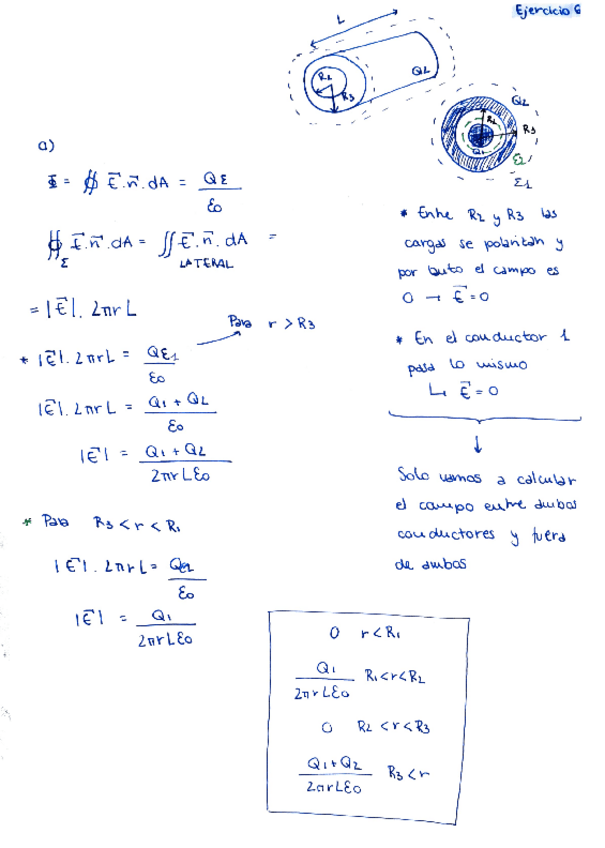 Ejercicio 6
L
R2
R3
Q2
Q2
R2
R3
Q1
Σ2
Σ1
a)
Φ = ∯ E⃗.n⃗.dA = QΣ/ε0
∯Σ E⃗.n⃗.dA = ∬LATERAL E⃗.n⃗.dA =
= |E⃗|. 2πrL
Para r > R3
* |E⃗|. 2πrL = QΣ1/ε0
|E⃗|. 2πrL = Q1 + Q2/ε0
|E⃗| = Q1 + Q2/2πrLε0
* Para R3 < r < R1
|E⃗|. 2πrL = QΣ2/ε0
|E⃗| = Q1/2πrLε0
* Entre R2 y R3 las
cargas se polarizan y
por tanto el campo es
0 → E⃗ = 0
* En el conductor 1
pasa lo mismo
↳ E⃗ = 0
↓
Solo vamos a calcular
el campo entre ambos
conductores y fuera
de ambos
0 r<R1
Q1/2πrLε0 R1<r<R2
0 R2<r<R3
Q1+Q2/2πrLε0 R3<r